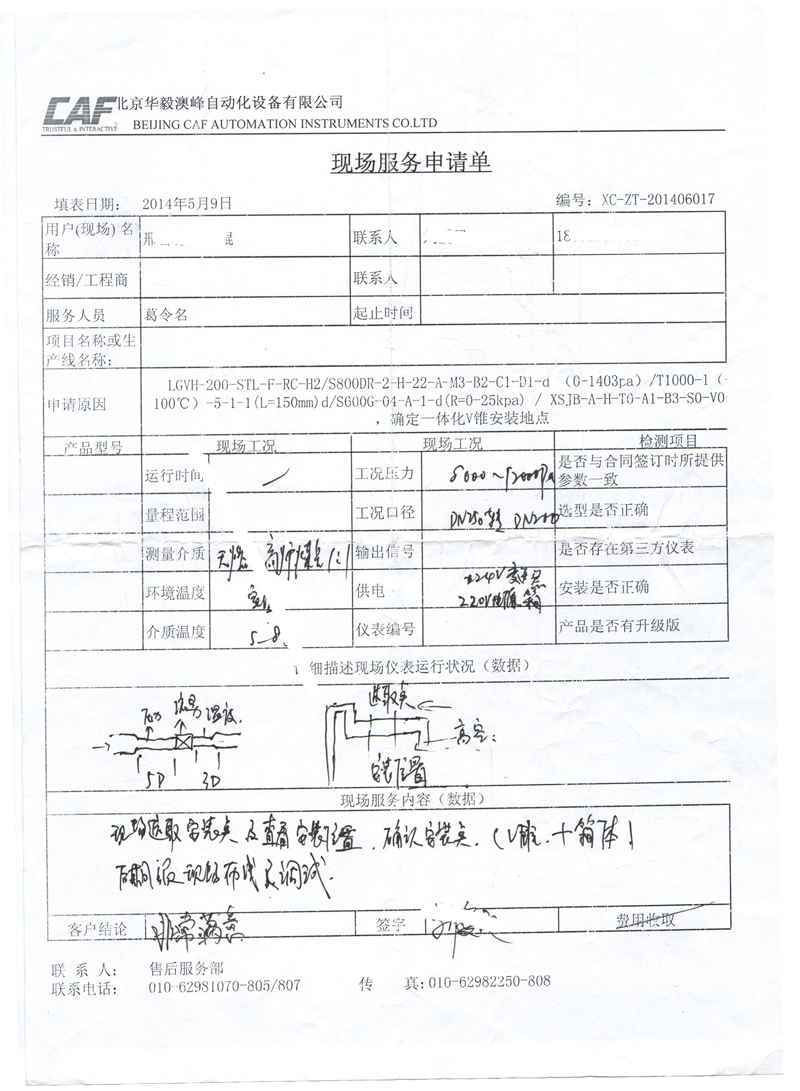 CAF 北京华毅澳峰自动化设备有限公司
TRUSTFUL & INTERACTIVE BEIJING CAF AUTOMATION INSTRUMENTS CO.LTD
现场服务申请单
填表日期： 2014年5月9日 编号：XC-ZT-201406017
用户(现场)名称 邢 昆 联系人 18
经销/工程商 联系人
服务人员 葛令名 起止时间
项目名称或生产线名称：
申请原因 LGVH-200-STL-F-RC-H2/S800DR-2-H-22-A-M3-B2-C1-D1-d （0-1403pa）/T1000-1（-
100℃）-5-1-1(L=150mm)d/S600G-04-A-1-d(R=0-25kpa) / XSJB-A-H-T0-A1-B3-S0-V0
，确定一体化V锥安装地点
产品型号 现场工况 现场工况 检测项目
运行时间 工况压力 8000～12000Pa 是否与合同签订时所提供参数一致
量程范围 工况口径 DN250 DN200 选型是否正确
测量介质 高炉煤气 输出信号 是否存在第三方仪表
环境温度 供电 ±24V 220V 安装是否正确
介质温度 5-8 仪表编号 产品是否有升级版
细描述现场仪表运行状况（数据）
压力 流量 温度
5D 3D
选取点
高空
安装位置
现场服务内容（数据）
现场选取安装点及查看安装位置，确认安装点.（V锥.十箱体）
后期 现场布线及调试.
客户结论 非常满意 签字 费用收取
联 系 人： 售后服务部
联系电话： 010-62981070-805/807 传 真：010-62982250-808